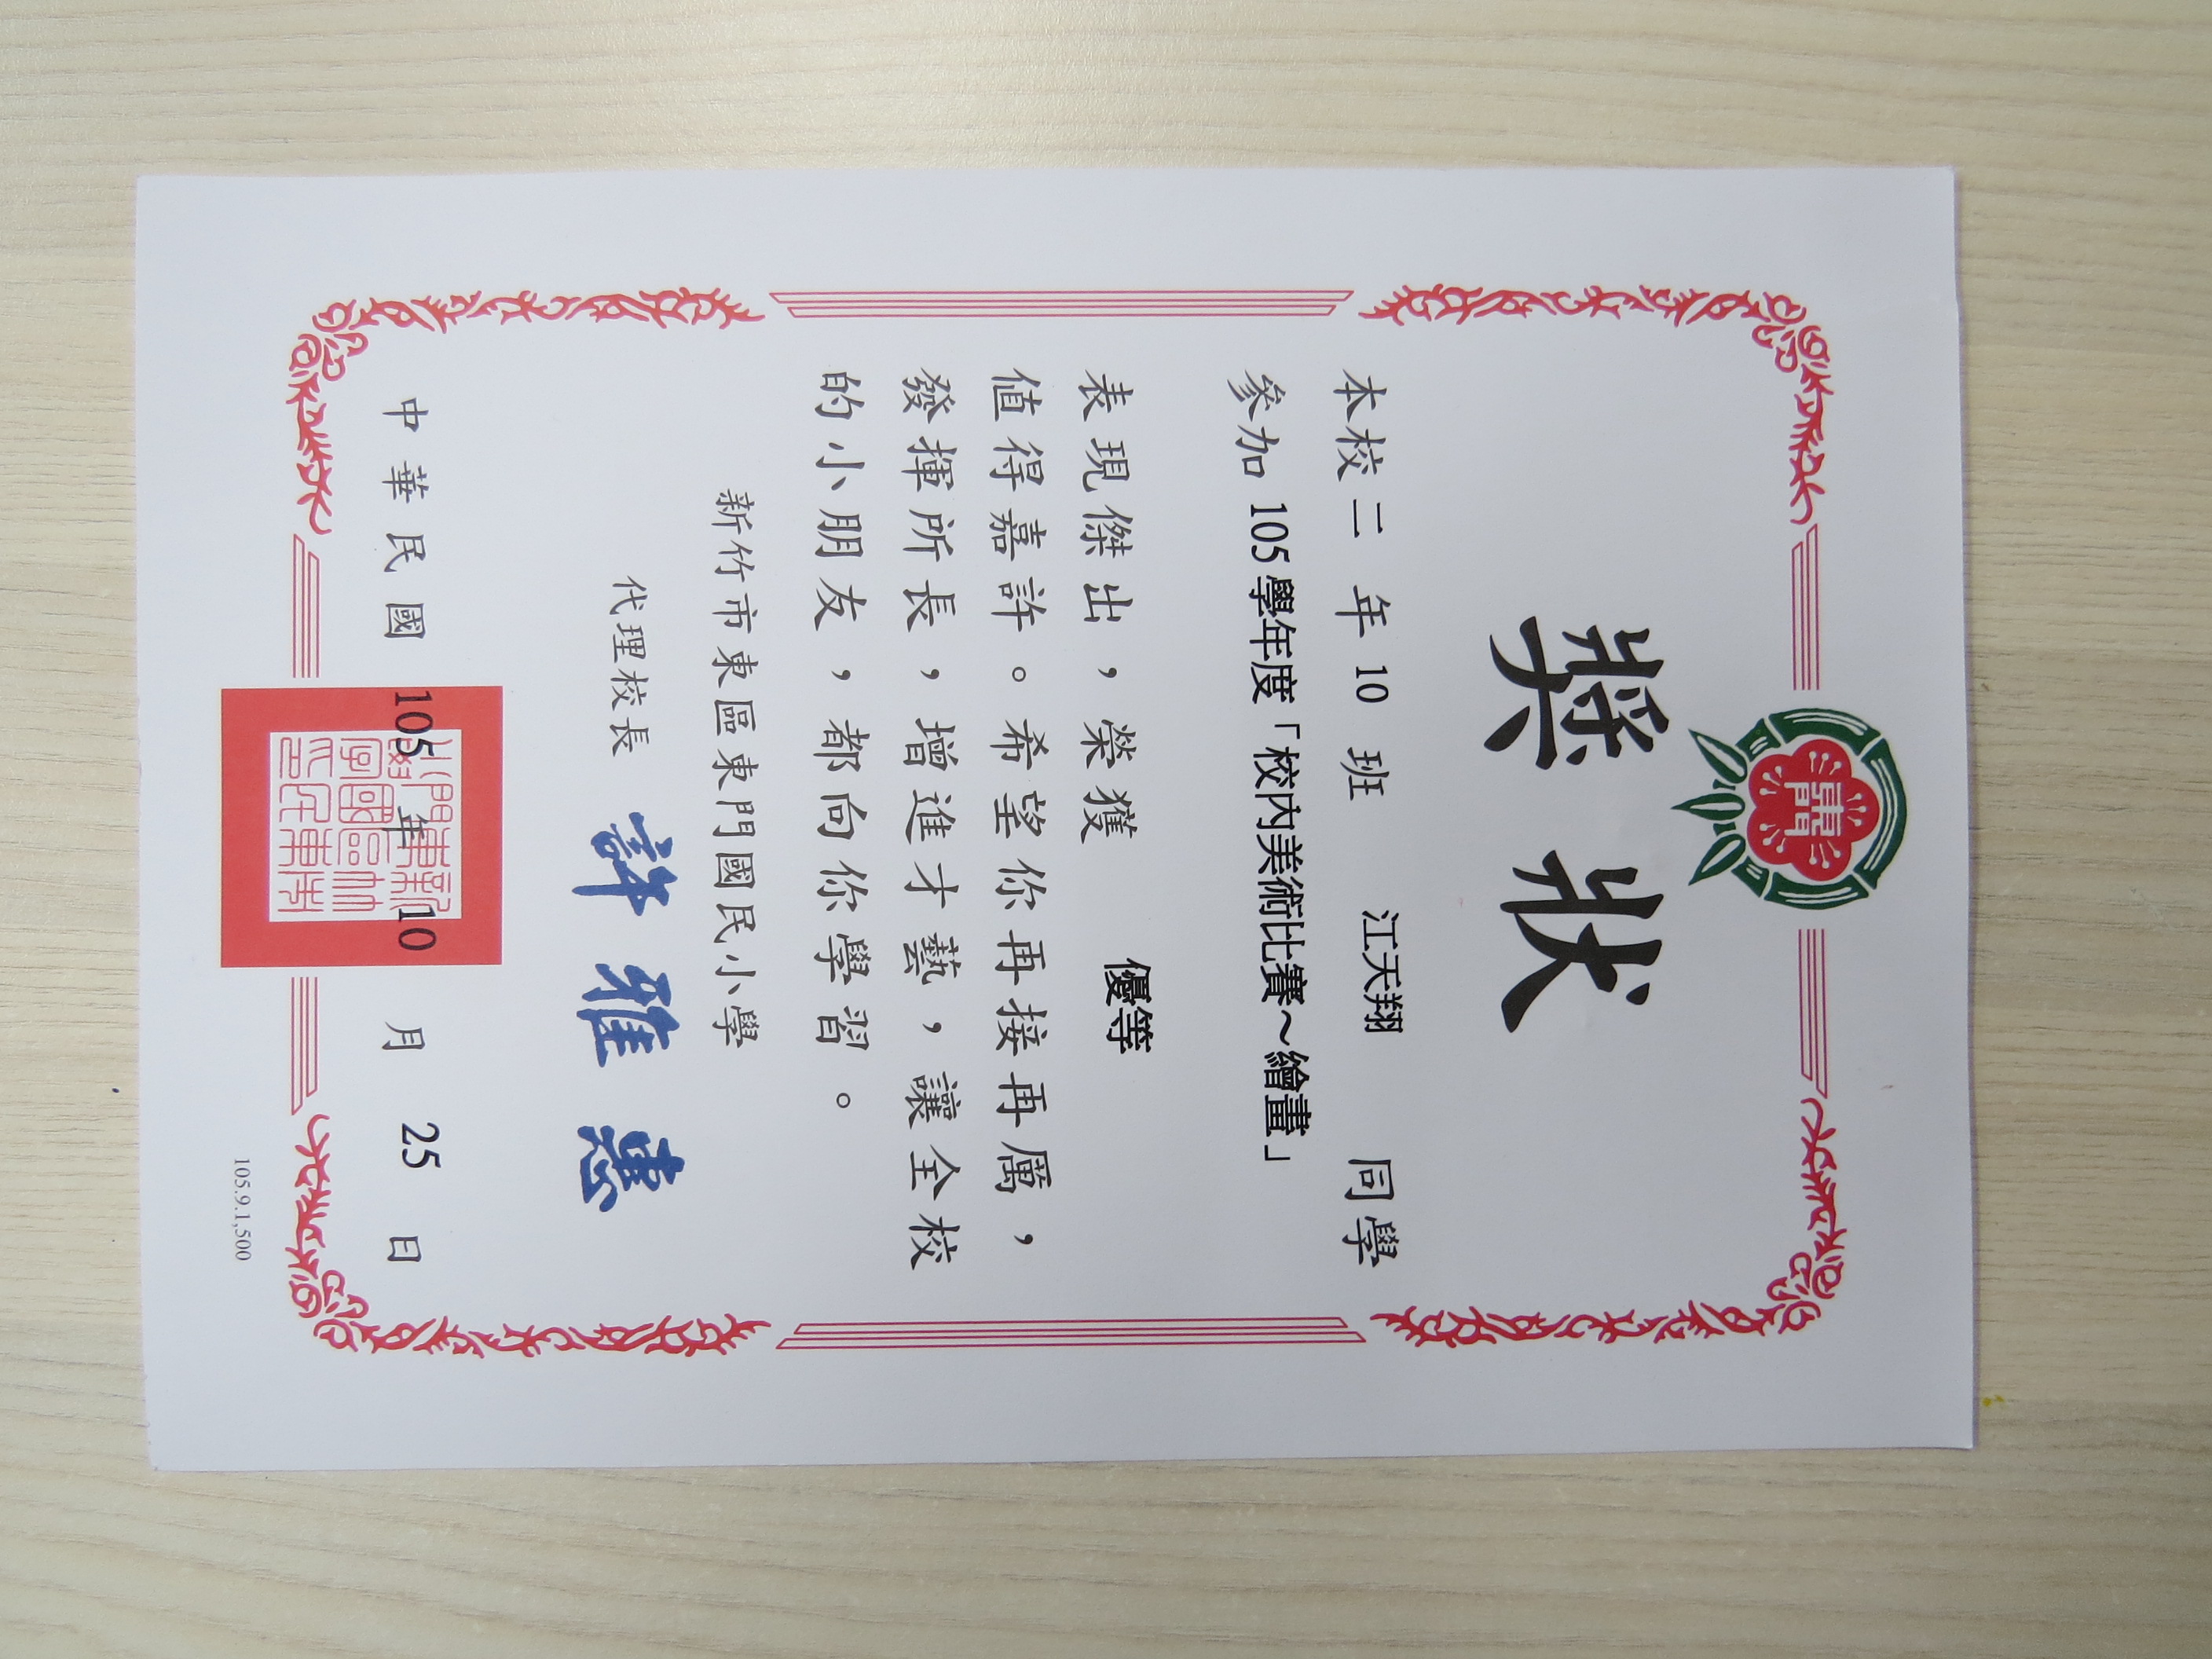 東門
獎狀
本校二年10班 江天翔 同學
參加105學年度「校內美術比賽～繪畫」
表現傑出，榮獲 優等
值得嘉許。希望你再接再厲，
發揮所長，增進才藝，讓全校
的小朋友，都向你學習。
新竹市東區東門國民小學
代理校長 許雅惠
中華民國105年10月25日
105.9.1,500